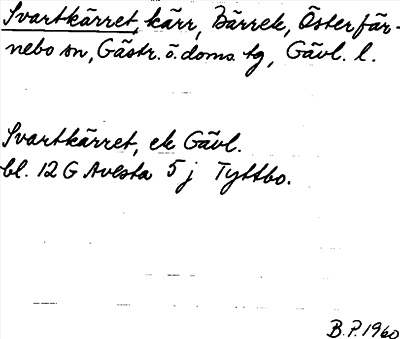 Svartkärret, kärr, Bärrek, Österfär-
nebo sn, Gästr. ö. doms. tg, Gävl. l.
Svartkärret, ek Gävl.
bl. 12 G Avesta 5 j Tyttbo.
B.P. 1960